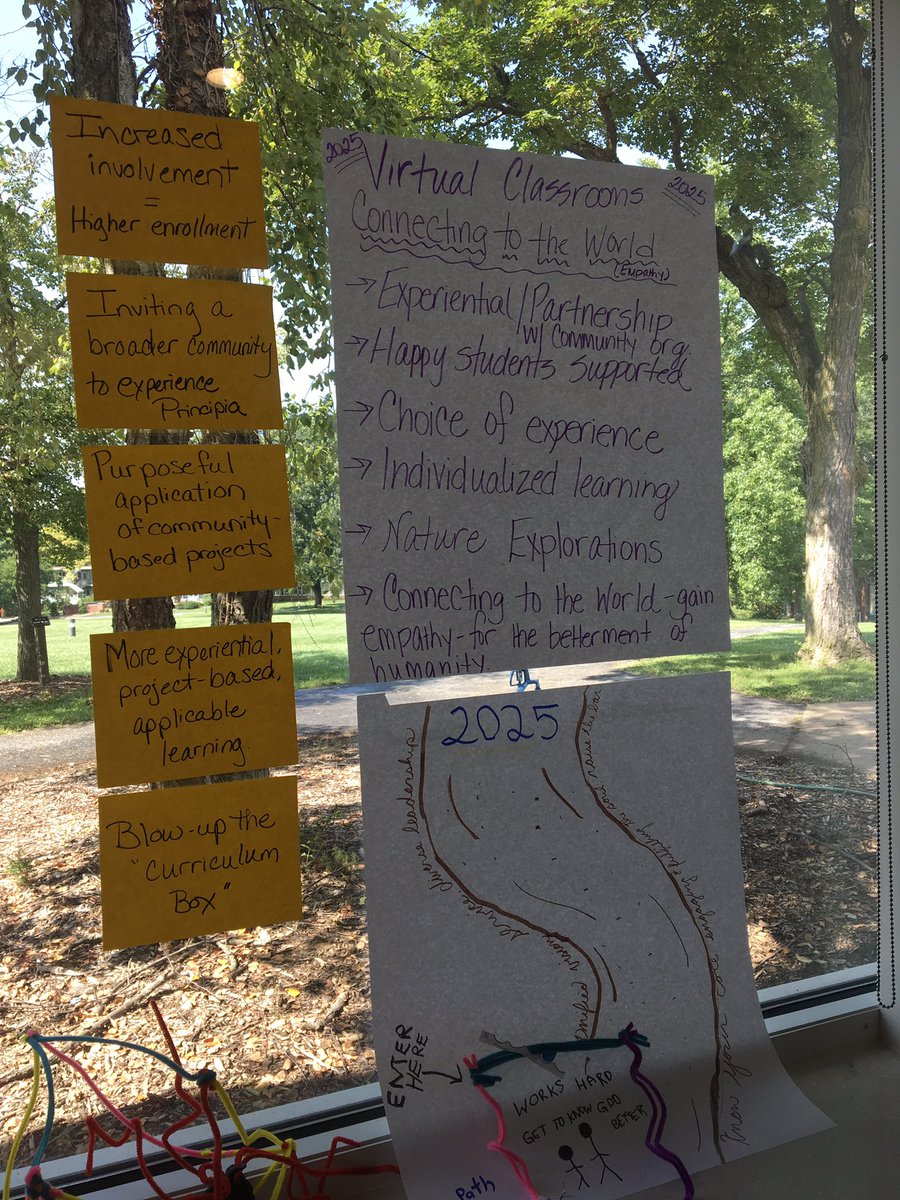 Increased
involvement
=
Higher enrollment
Inviting a
broader community
to experience
Principia
Purposeful
application
of community-
based projects
More experiential,
project-based,
applicable
learning.
Blow-up the
"Curriculum
Box"
2025
2025
Virtual Classrooms
Connecting to the World
(Empathy)
→ Experiential/Partnership
w/ Community org.
→ Happy students supported
→ Choice of experience
→ Individualized learning
→ Nature Explorations
→ Connecting to the World - gain
empathy - for the betterment of
humanity
2025
diverse leadership
service
unified vision
and raise the bar
engaging
Know your core
ENTER
HERE
WORKS HARD
GET TO KNOW GOD
BETTER
Path